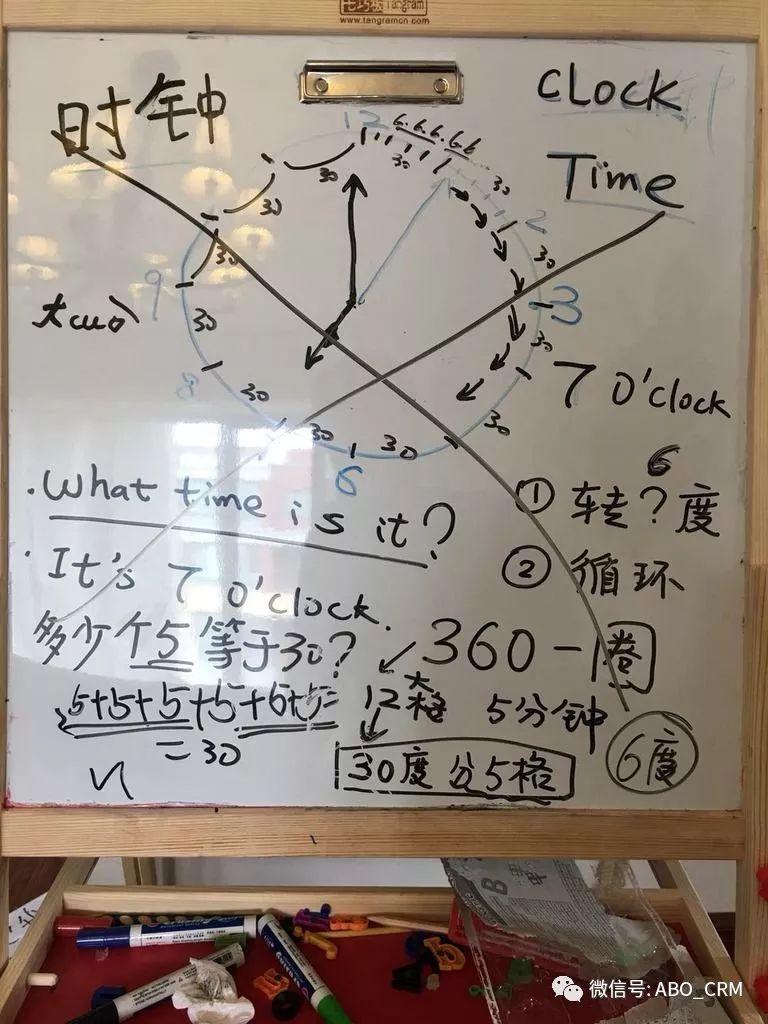 Tangram
www.tangramcn.com
时钟
CLock
Time
12
6.6.6.6.6
30
30
30
30
30
30
30
30
30
30
30
30
2
3
6
8
9
7 O'clock
What time is it?
It's 7 O'clock.
多少个5等于30?
5+5+5+5+6+5=
=30
6
① 转?度
② 循环
360一圈
12大格 5分钟
30度分5格
6度
微信号: ABO_CRM